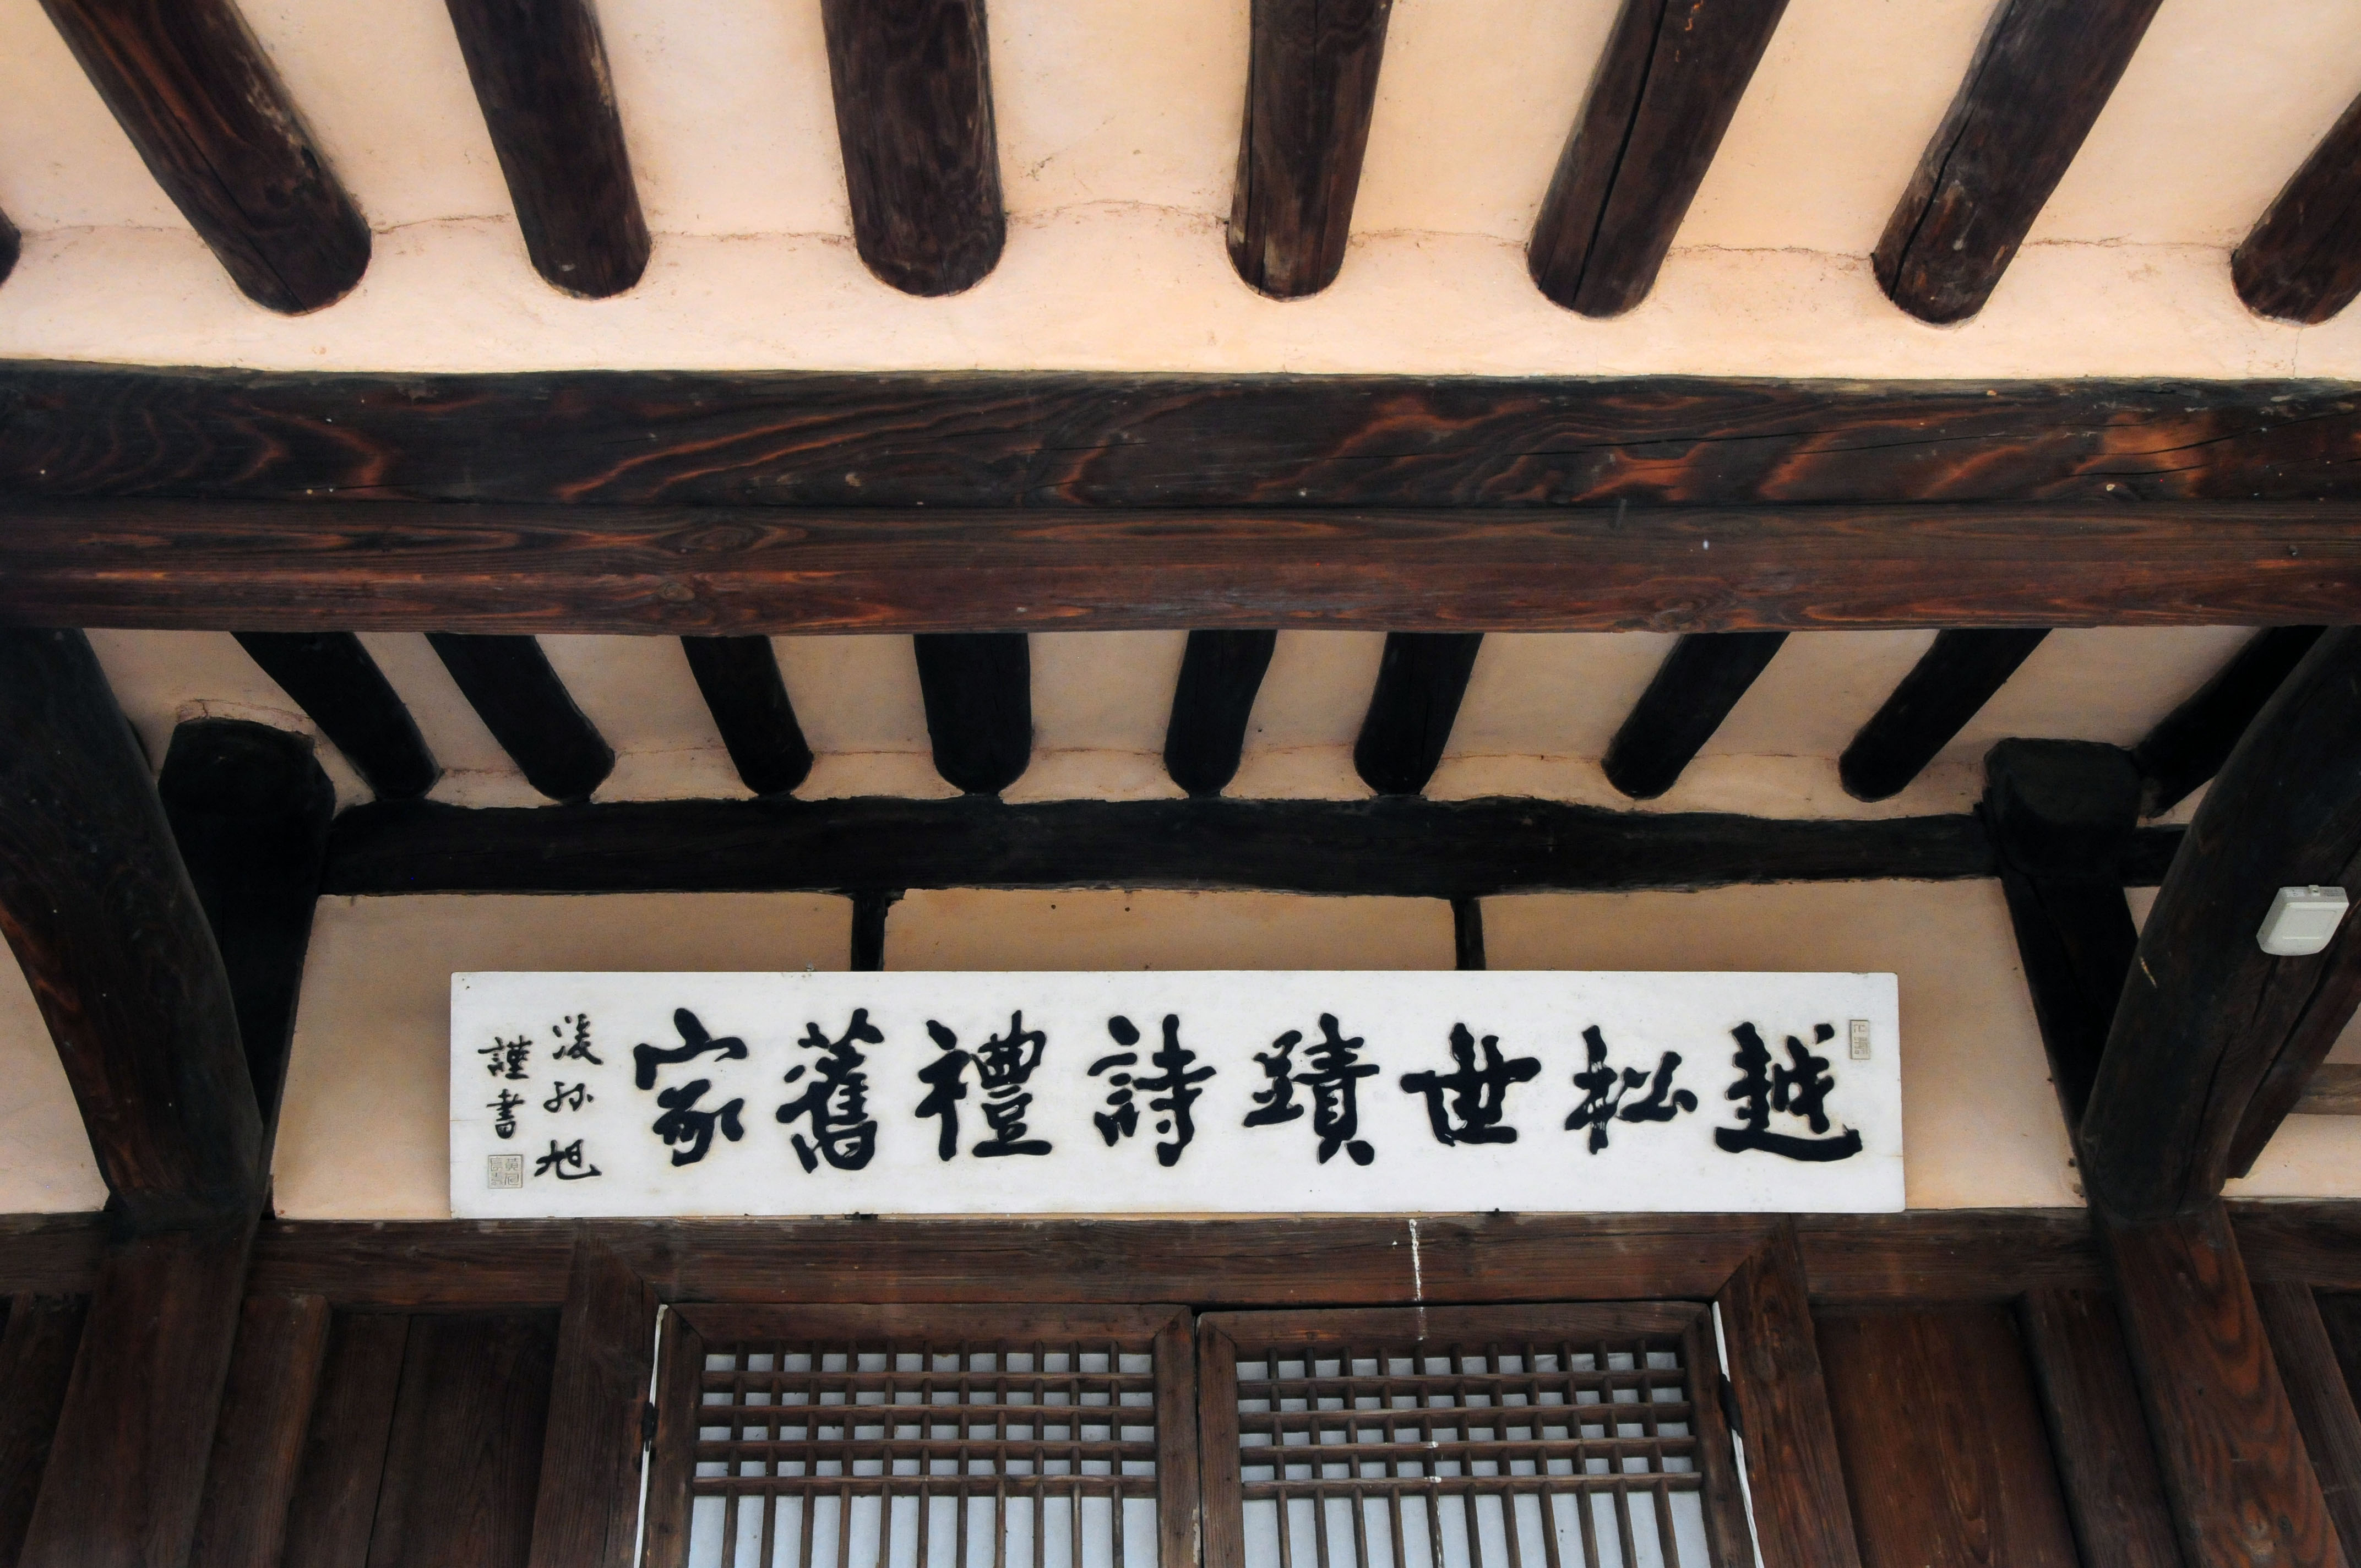 越松世蹟詩禮舊家
後孫旭
謹書